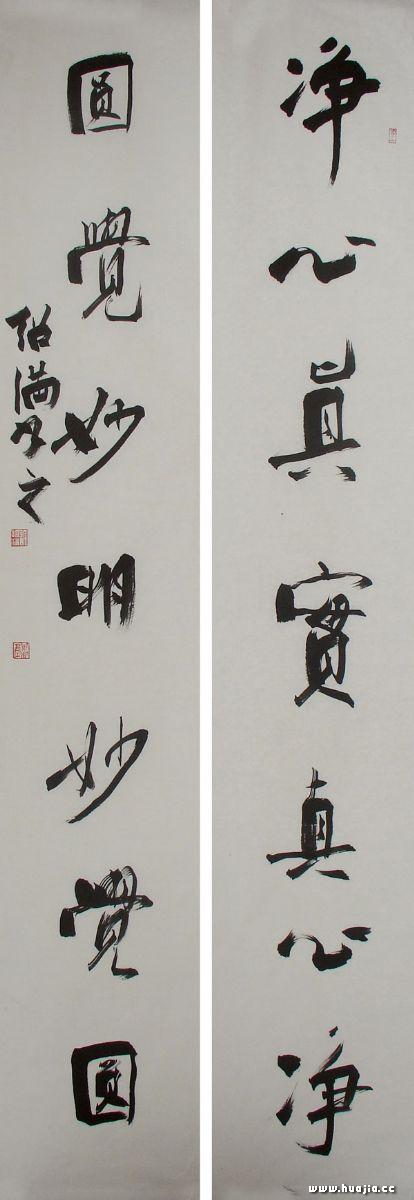 净心真實真心净
圓覺妙明妙覺圓
www.huajia.cc